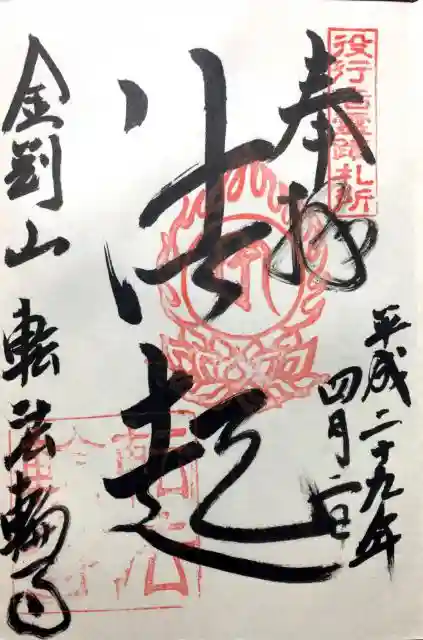 役行者霊蹟札所
奉拝
平成二十九年
四月二日
法起
金剛山 転法輪寺